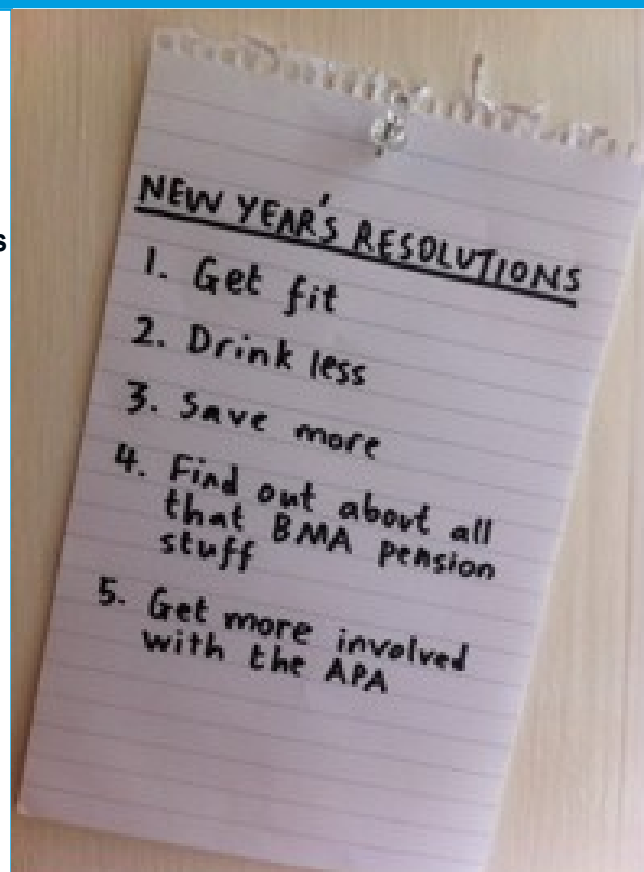 s
NEW YEAR'S RESOLUTIONS
1. Get fit
2. Drink less
3. Save more
4. Find out about all
that BMA pension
stuff
5. Get more involved
with the APA